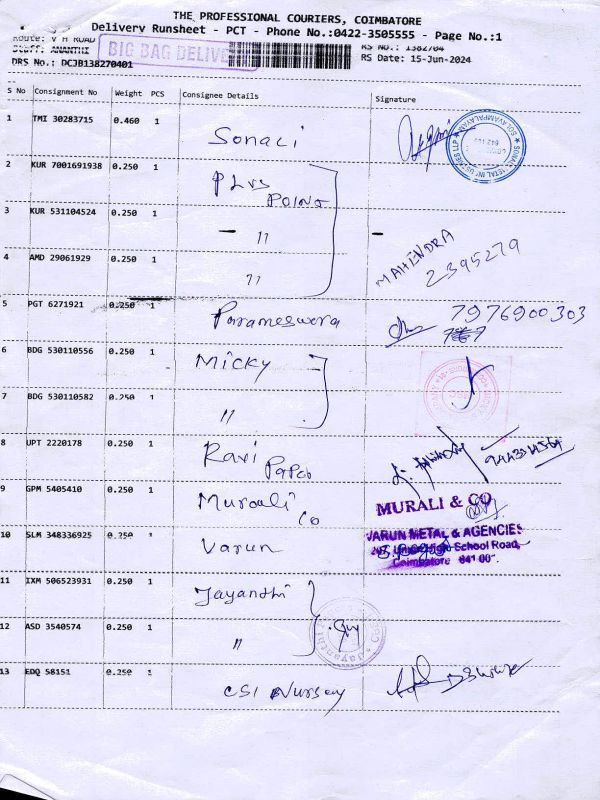 THE PROFESSIONAL COURIERS, COIMBATORE
Delivery Runsheet - PCT - Phone No.:0422-3505555 - Page No.:1
Route: V H ROAD
Staff: ANANTHI
BIG BAG DELIVE
RS No.: 1382704
DRS No.: DCJB138270401
RS Date: 15-Jun-2024
S No Consignment No Weight PCS Consignee Details Signature
1 TMI 30283715 0.460 1 Sonali
2 KUR 7001691938 0.250 1 Plus
Point
3 KUR 531104524 0.250 1 — "
4 AMD 29061929 0.250 1 " MAHENDRA
2395279
5 PGT 6271921 0.250 1 Parameswora 7976900303
6 BDG 530110556 0.250 1 Micky
7 BDG 530110582 0.250 1 "
8 UPT 2220178 0.250 1 Ravi
9 GPM 5405410 0.250 1 Muraali
Co
MURALI & CO
10 SLM 348336925 0.250 1 Varun
VARUN METAL & AGENCIES
High School Road,
Coimbatore
11 IXM 506523931 0.250 1 Jayandhi
12 ASD 3540574 0.250 1 "
13 EDQ 58151 0.250 1 CSI Nursey